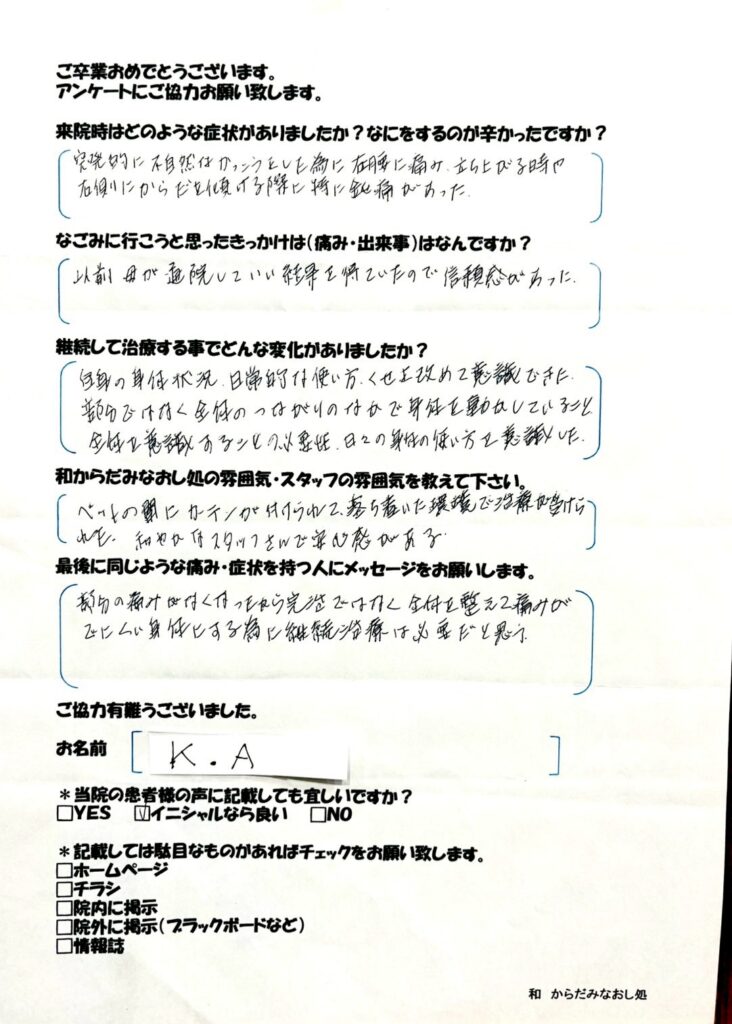 ご卒業おめでとうございます。
アンケートにご協力お願い致します。
来院時はどのような症状がありましたか？なにをするのが辛かったですか？
突発的に不自然なかっこうをした為に右腰に痛み、立ち上がる時や
右側にからだを傾ける際に特に鈍痛があった。
なごみに行こうと思ったきっかけは（痛み・出来事）はなんですか？
以前 母が通院していい結果を得ていたので信頼感があった.
継続して治療する事でどんな変化がありましたか？
自身の身体状況、日常的な使い方、くせを改めて意識できた.
部分ではなく全体のつながりのなかで身体を動かしていること
全体を意識することの必要性、日々の身体の使い方を意識した.
和からだみなおし処の雰囲気・スタッフの雰囲気を教えて下さい。
ベットの間にカーテンが付けられて、落ち着いた環境で治療が受けら
れた. 和やかなスタッフさんで安心感がある.
最後に同じような痛み・症状を持つ人にメッセージをお願いします。
部分の痛みがなくなったから完治ではなく 全体を整えて痛みが
でにくい身体にする為に継続治療は必要だと思う.
ご協力有難うございました。
お名前 K.A
＊当院の患者様の声に記載しても宜しいですか？
□YES ☑イニシャルなら良い □NO
＊記載しては駄目なものがあればチェックをお願い致します。
□ホームページ
□チラシ
□院内に掲示
□院外に掲示（ブラックボードなど）
□情報誌
和 からだみなおし処